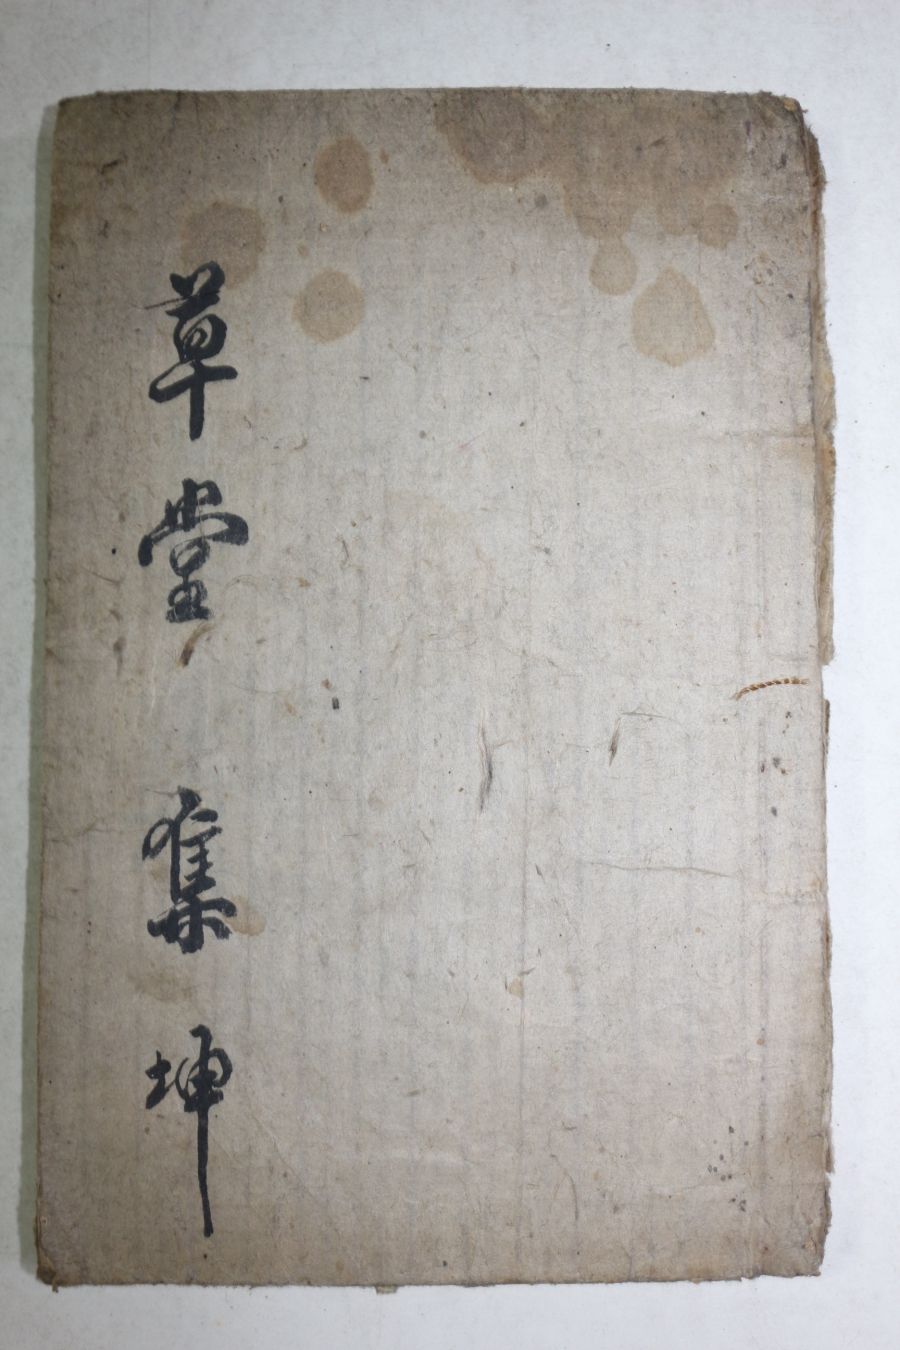 草堂集坤